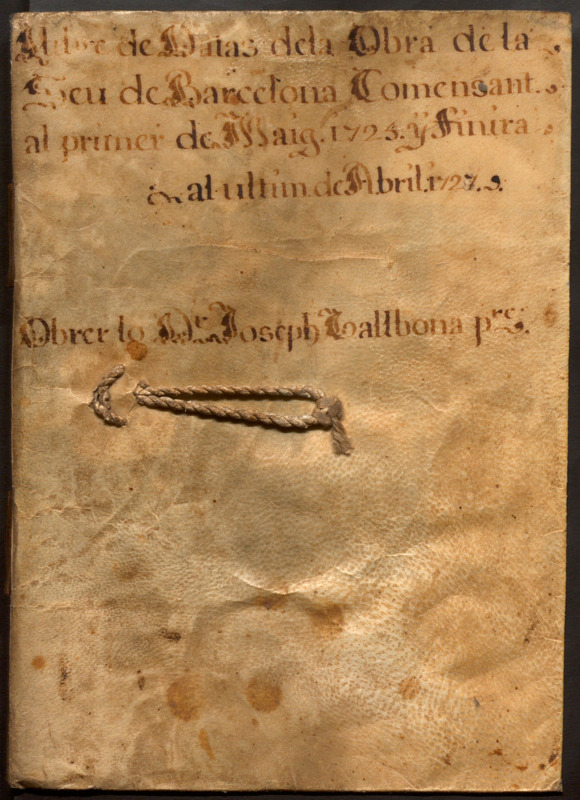 Llibre de Datas dela Obra de la
Seu de Barcelona Comensant.
al primer de Maig. 1725. ÿ Finira
al ultim. de Abril. 1727.
Obrer lo Dr. Joseph Vallbona pre.